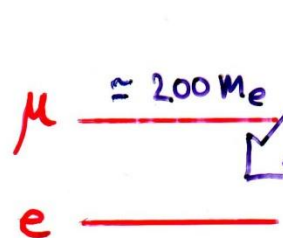 ≃ 200 me
μ
e